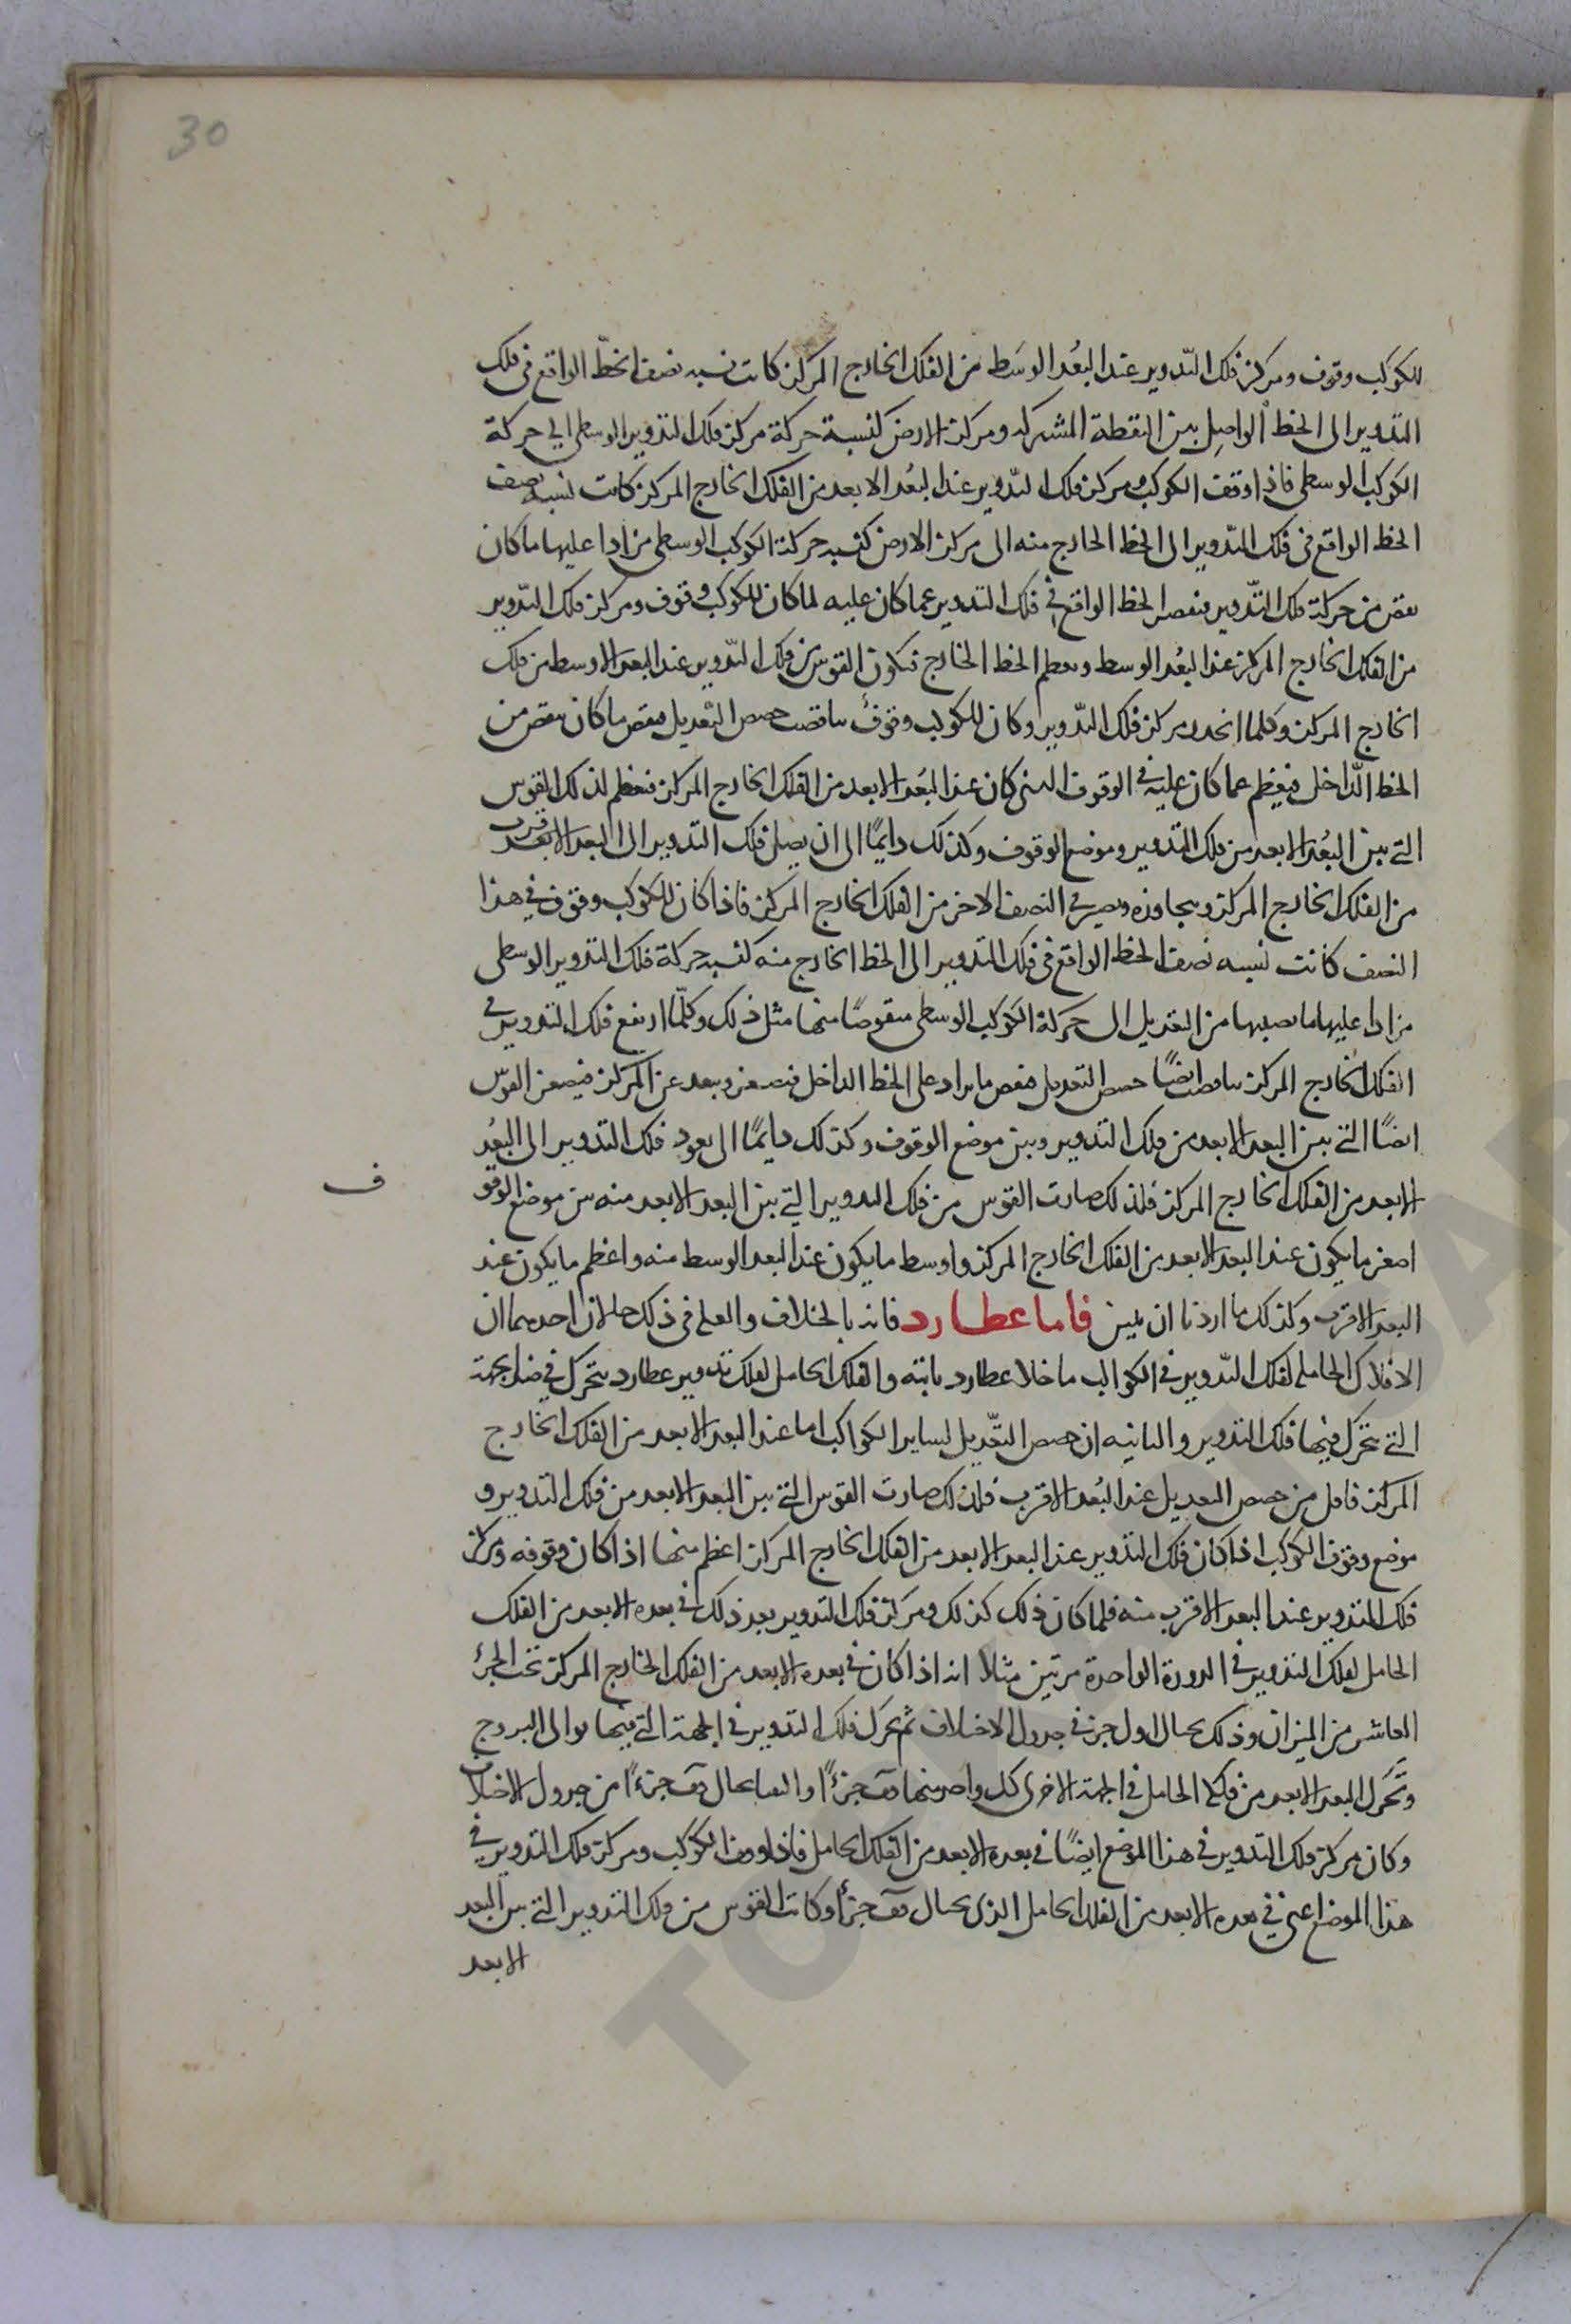 30
للكوكب وقوف ومركز فلك التدوير عند البُعد الوسَط من الفلك الخارج المركز كانت نسبه نصف الخطّ الواقع فى فلك
التدوير الى الخط الواصِل بين النقطة المشتركه ومركز الارض كنسبة حركة مركز فلك التدوير الوسطى الى حركة
الكوكب الوسطى فاذا وقف الكوكب ومركز فلك التدوير عند البُعد الابعد من الفلك الخارج المركز كانت نسبه نصف
الخط الواقع فى فلك التدوير الى الخط الخارج منه الى مركز الارض كنسبه حركة الكوكب الوسطى مزادا عليها ما كان
نقص من حركة فلك التدوير فنقص الخط الواقع فى فلك التدوير عما كان عليه لما كان للكوكب وقوف ومركز فلك التدوير
من الفلك الخارج المركز عند البُعد الوسط ويعظم الخط الخارج فتكون القوس من فلك التدوير عند البعد الاوسط من فلك
الخارج المركز وكلما انحدر مركز فلك التدوير وكان للكوكب وقوفٌ تناقصت حصص التعديل فنقص ما كان ينقص من
الخط الداخل فيعظم عما كان عليه فى الوقوف الذى كان عند البُعد الابعد من الفلك الخارج المركز فتعظم لذلك القوس
التى بين البُعد الابعد من فلك التدوير وموضع الوقوف وكذلك دايمًا الى ان يصل فلك التدوير الى البعد الاقرب
من الفلك الخارج المركز ويجاوزه ويصير فى النصف الاخر من الفلك الخارج المركز فاذا كان للكوكب وقوف فى هذا
النصف كانت نسبه نصف الخط الواقع فى فلك التدوير الى الخط الخارج منه كنسبه حركة فلك التدوير الوسطى
مزادا عليها ما يصيبها من التعديل الى حركة الكوكب الوسطى منقوصًا منها مثل ذلك وكلّما ارتفع فلك التدوير فى
الفلك الخارج المركز تناقصت ايضًا حصص التعديل فنقص ما يزاد على الخط الداخل فتصغر ويبعد عن المركز فيصغر القوس
ايضًا التى بين البعد الابعد من فلك التدوير وبين موضع الوقوف وكذلك دايمًا الى يعود فلك التدوير الى البُعد
الابعد من الفلك الخارج المركز فلذلك صارت القوس من فلك التدوير التى بين البعد الابعد منه من موضع الوقو
ف
اصغر ما يكون عند البعد الابعد من الفلك الخارج المركز واوسط ما يكون عند البعد الوسط منه واعظم ما يكون عند
البعد الاقرب وكذلك ما اردنا ان نبين فاما عطارد فانه بالخلاف والعله فى ذلك احديهما ان
الافلاك الحامله لفلك التدوير فى الكواكب ما خلا عطارد ثابته والفلك الحامل لفلك تدوير عطارد يتحرك فى ضد الجهة
التى يتحرك فيها فلك التدوير والثانيه ان حصص التعديل لساير الكواكب اما عند البعد الابعد من الفلك الخارج
المركز فاقل من حصص التعديل عند البُعد الاقرب فلذلك صارت القوس التى بين البعد الابعد من فلك التدوير و
موضع وقوف الكوكب اذا كان فلك التدوير عند البعد الابعد من الفلك الخارج المركز اعظم منها اذا كان وقوفه ومركز
فلك التدوير عند البعد الاقرب منه فلما كان ذلك كذلك ومركز فلك التدوير بعد ذلك فى بعده الابعد من الفلك
الحامل لفلك التدوير فى الدورة الواحدة مرتين مثلا انه اذا كان فى بعده الابعد من الفلك الخارج المركز تحت الجزء
العاشر من الميزان وذلك بحيال اول جزء فى جدول الاختلاف ثم تحرك فلك التدوير فى الجهة التى فيها توالى البروج
وتَحَرك البعد الابعد من فلك الحامل فى الجهة الاخرى كل واحد منهما جزءًا والتقيا بحيال جزءًا من جدول الاختلاف
وكان مركز فلك التدوير فى هذا الموضع ايضًا فى بعده الابعد من الفلك الحامل فاذا وقف الكوكب ومركز فلك التدوير فى
هذا الموضع اعنى فى بعده الابعد من الفلك الحامل الذى بحيال جزءًا وكانت القوس من فلك التدوير التى بين البعد
الابعد